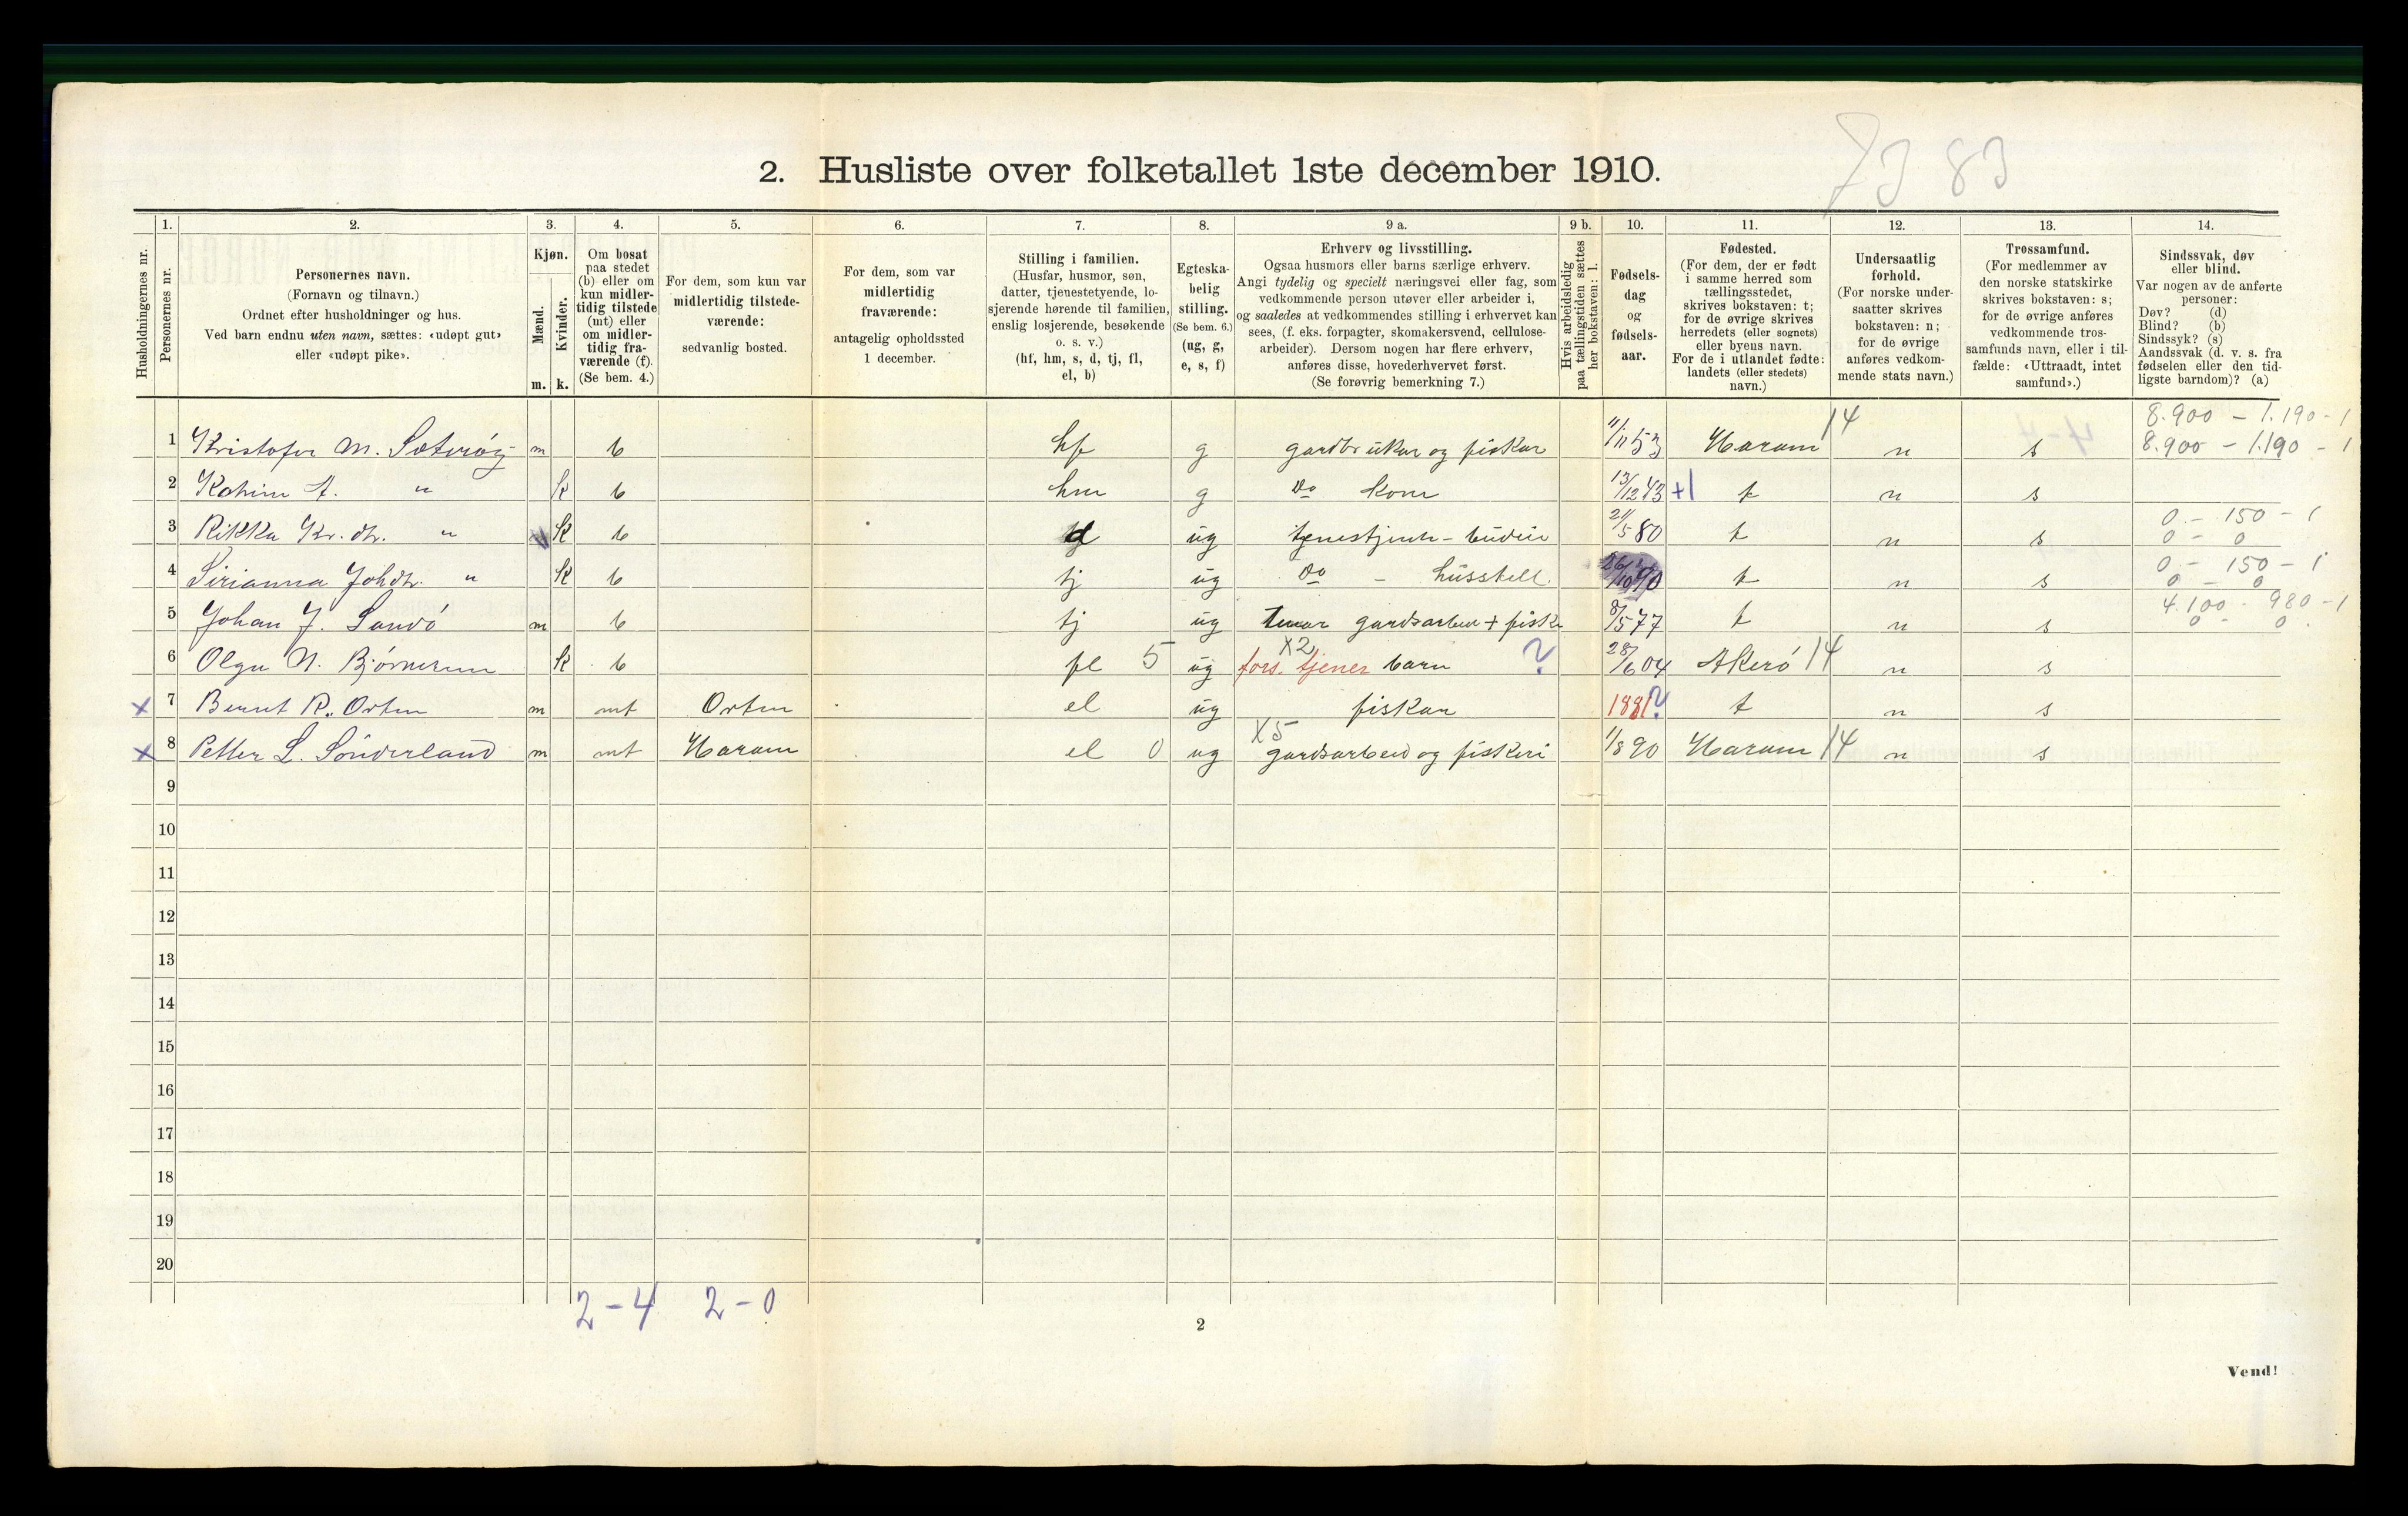 73 83
2. Husliste over folketallet 1ste december 1910.
1. 2. 3. 4. 5. 6. 7. 8. 9 a. 9 b. 10. 11. 12. 13. 14.
Husholdningernes nr.
Personernes nr.
Personernes navn.
(Fornavn og tilnavn.)
Ordnet efter husholdninger og hus.
Ved barn endnu uten navn, sættes: «udøpt gut»
eller «udøpt pike».
Kjøn.
Mænd.
Kvinder.
m. k.
Om bosat
paa stedet
(b) eller om
kun midler-
tidig tilstede
(mt) eller
om midler-
tidig fra-
værende (f).
(Se bem. 4.)
For dem, som kun var
midlertidig tilstede-
værende:
sedvanlig bosted.
For dem, som var
midlertidig
fraværende:
antagelig opholdssted
1 december.
Stilling i familien.
(Husfar, husmor, søn,
datter, tjenestetyende, lo-
sjerende hørende til familien,
enslig losjerende, besøkende
o. s. v.)
(hf, hm, s, d, tj, fl,
el, b)
Egteska-
belig
stilling.
(Se bem. 6.)
(ug, g,
e, s, f)
Erhverv og livsstilling.
Ogsaa husmors eller barns særlige erhverv.
Angi tydelig og specielt næringsvei eller fag, som
vedkommende person utøver eller arbeider i,
og saaledes at vedkommendes stilling i erhvervet kan
sees, (f. eks. forpagter, skomakersvend, cellulose-
arbeider). Dersom nogen har flere erhverv,
anføres disse, hovederhvervet først.
(Se forøvrig bemerkning 7.)
Hvis arbeidsledig
paa tællingstiden sættes
her bokstaven: l.
Fødsels-
dag
og
fødsels-
aar.
Fødested.
(For dem, der er født
i samme herred som
tællingsstedet,
skrives bokstaven: t;
for de øvrige skrives
herredets (eller sognets)
eller byens navn.
For de i utlandet fødte:
landets (eller stedets)
navn.)
Undersaatlig
forhold.
(For norske under-
saatter skrives
bokstaven: n;
for de øvrige
anføres vedkom-
mende stats navn.)
Trossamfund.
(For medlemmer av
den norske statskirke
skrives bokstaven: s;
for de øvrige anføres
vedkommende tros-
samfunds navn, eller i til-
fælde: «Uttraadt, intet
samfund».)
Sindssvak, døv
eller blind.
Var nogen av de anførte
personer:
Døv? (d)
Blind? (b)
Sindssyk? (s)
Aandssvak (d. v. s. fra
fødselen eller den tid-
ligste barndom)? (a)
8.900 - 1.190 - 1
1 Kristofer M. Sæterøy m b hf g gardbrukar og fiskar 11/11 53 Haram 14 n s 8.900 - 1.190 - 1
2 " k b hm g Do kone 13/12 43 +1 t n s
0 - 150 - 1
3 Rikka Kr. dt. " k b d ug - budeie 21/5 80 t n s 0 - 0
0 - 150 - 1
4 Sirianna Johdt. " k b tj ug Do - husstell 26/10 90 t n s 0 - 0
4.100 - 980 - 1
5 Johan J. Sandö m b tj ug gardsarbeid + fiske 8/5 77 t n s 0 - 0
6 Olga N. k b fl 5 ug fors. tjener barn X2 ? 28/6 04 Akerö 14 n s
x 7 Bernt R. Orten m mt Orten el ug fiskar 1881? t n s
x 8 Petter L. Sönderland m mt Haram el 0 ug X5 gardsarbeid og fiskeri 1/8 90 Haram 14 n s
9
10
11
12
13
14
15
16
17
18
19
20
2 - 4 2 - 0
2
Vend!